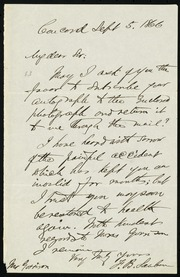 Concord Sept 5. 1866
My dear Sir.
May I ask of you the
favor to subscribe your
autograph to the enclosed
photograph and return it
to me through the mail?
I have heard with sorrow
of the painful accident
which has kept you an
invalid for months; but
I trust you may soon
be restored to health
again. With kindest
regards to Mrs Garrison
I remain
Very truly yours
F. B. Sanborn
Mr Garrison